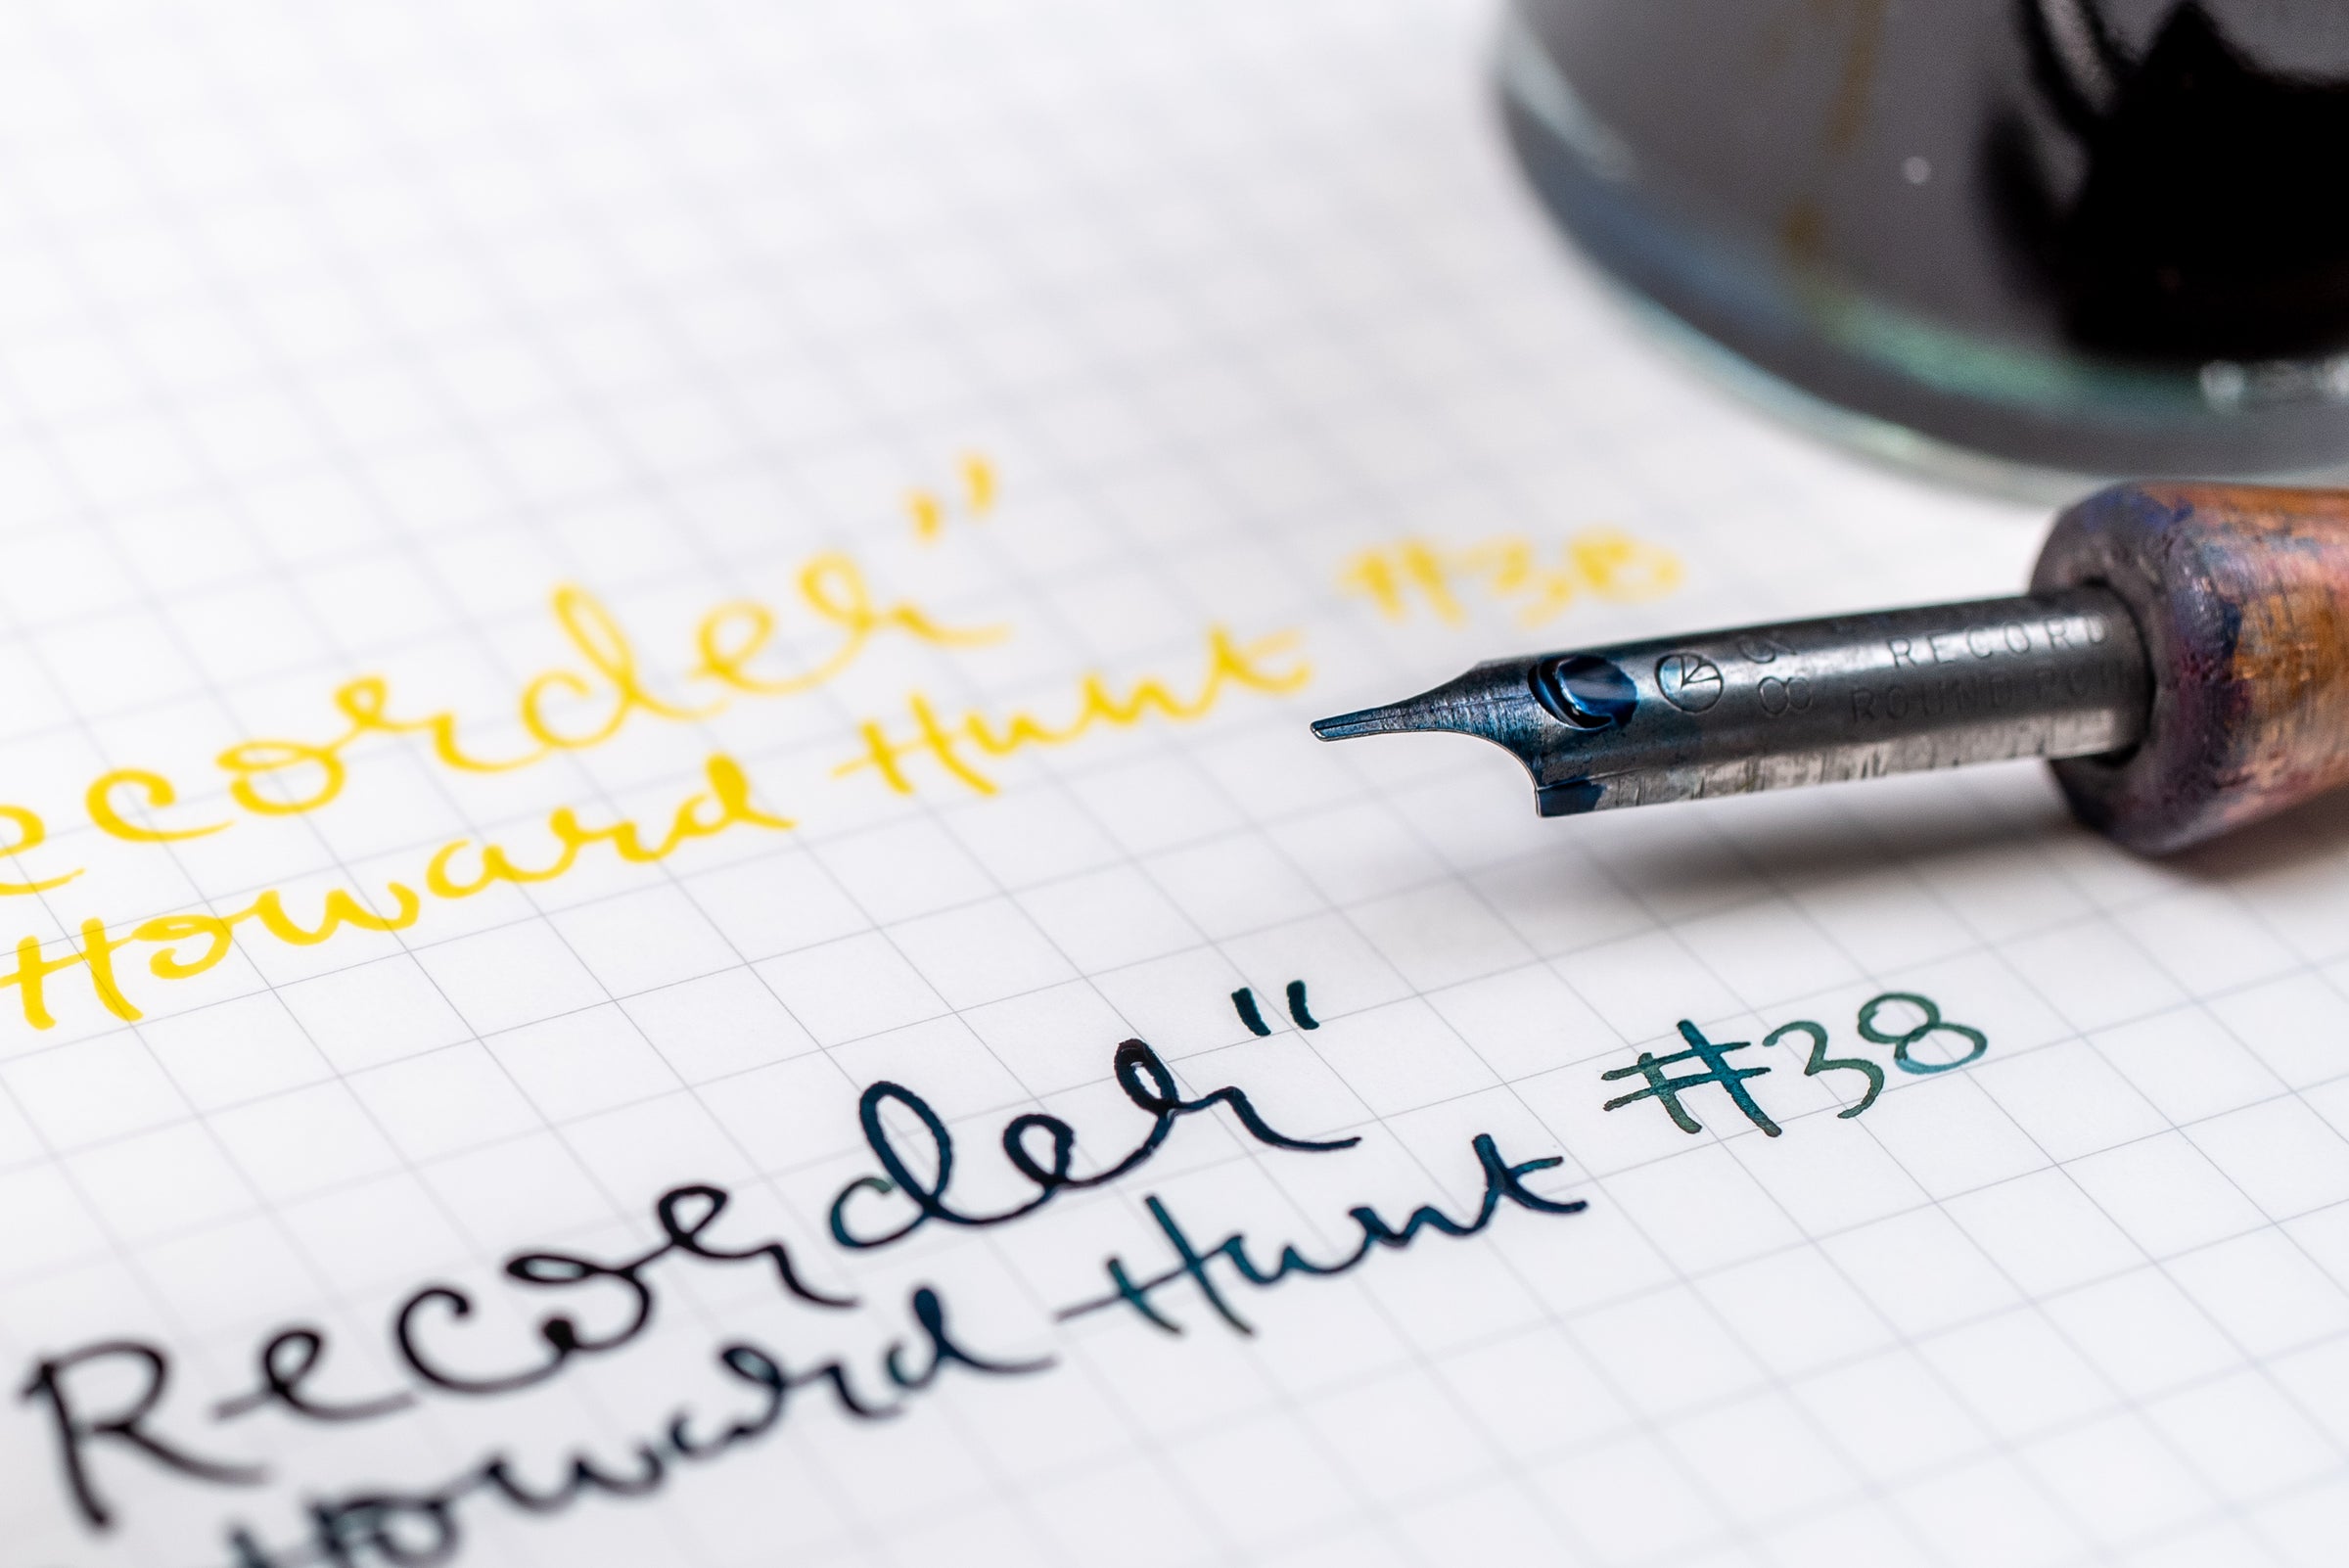 ecorder"
Howard Hunt #38
RECORD
ROUND PO
Recorder"
Howard Hunt #38